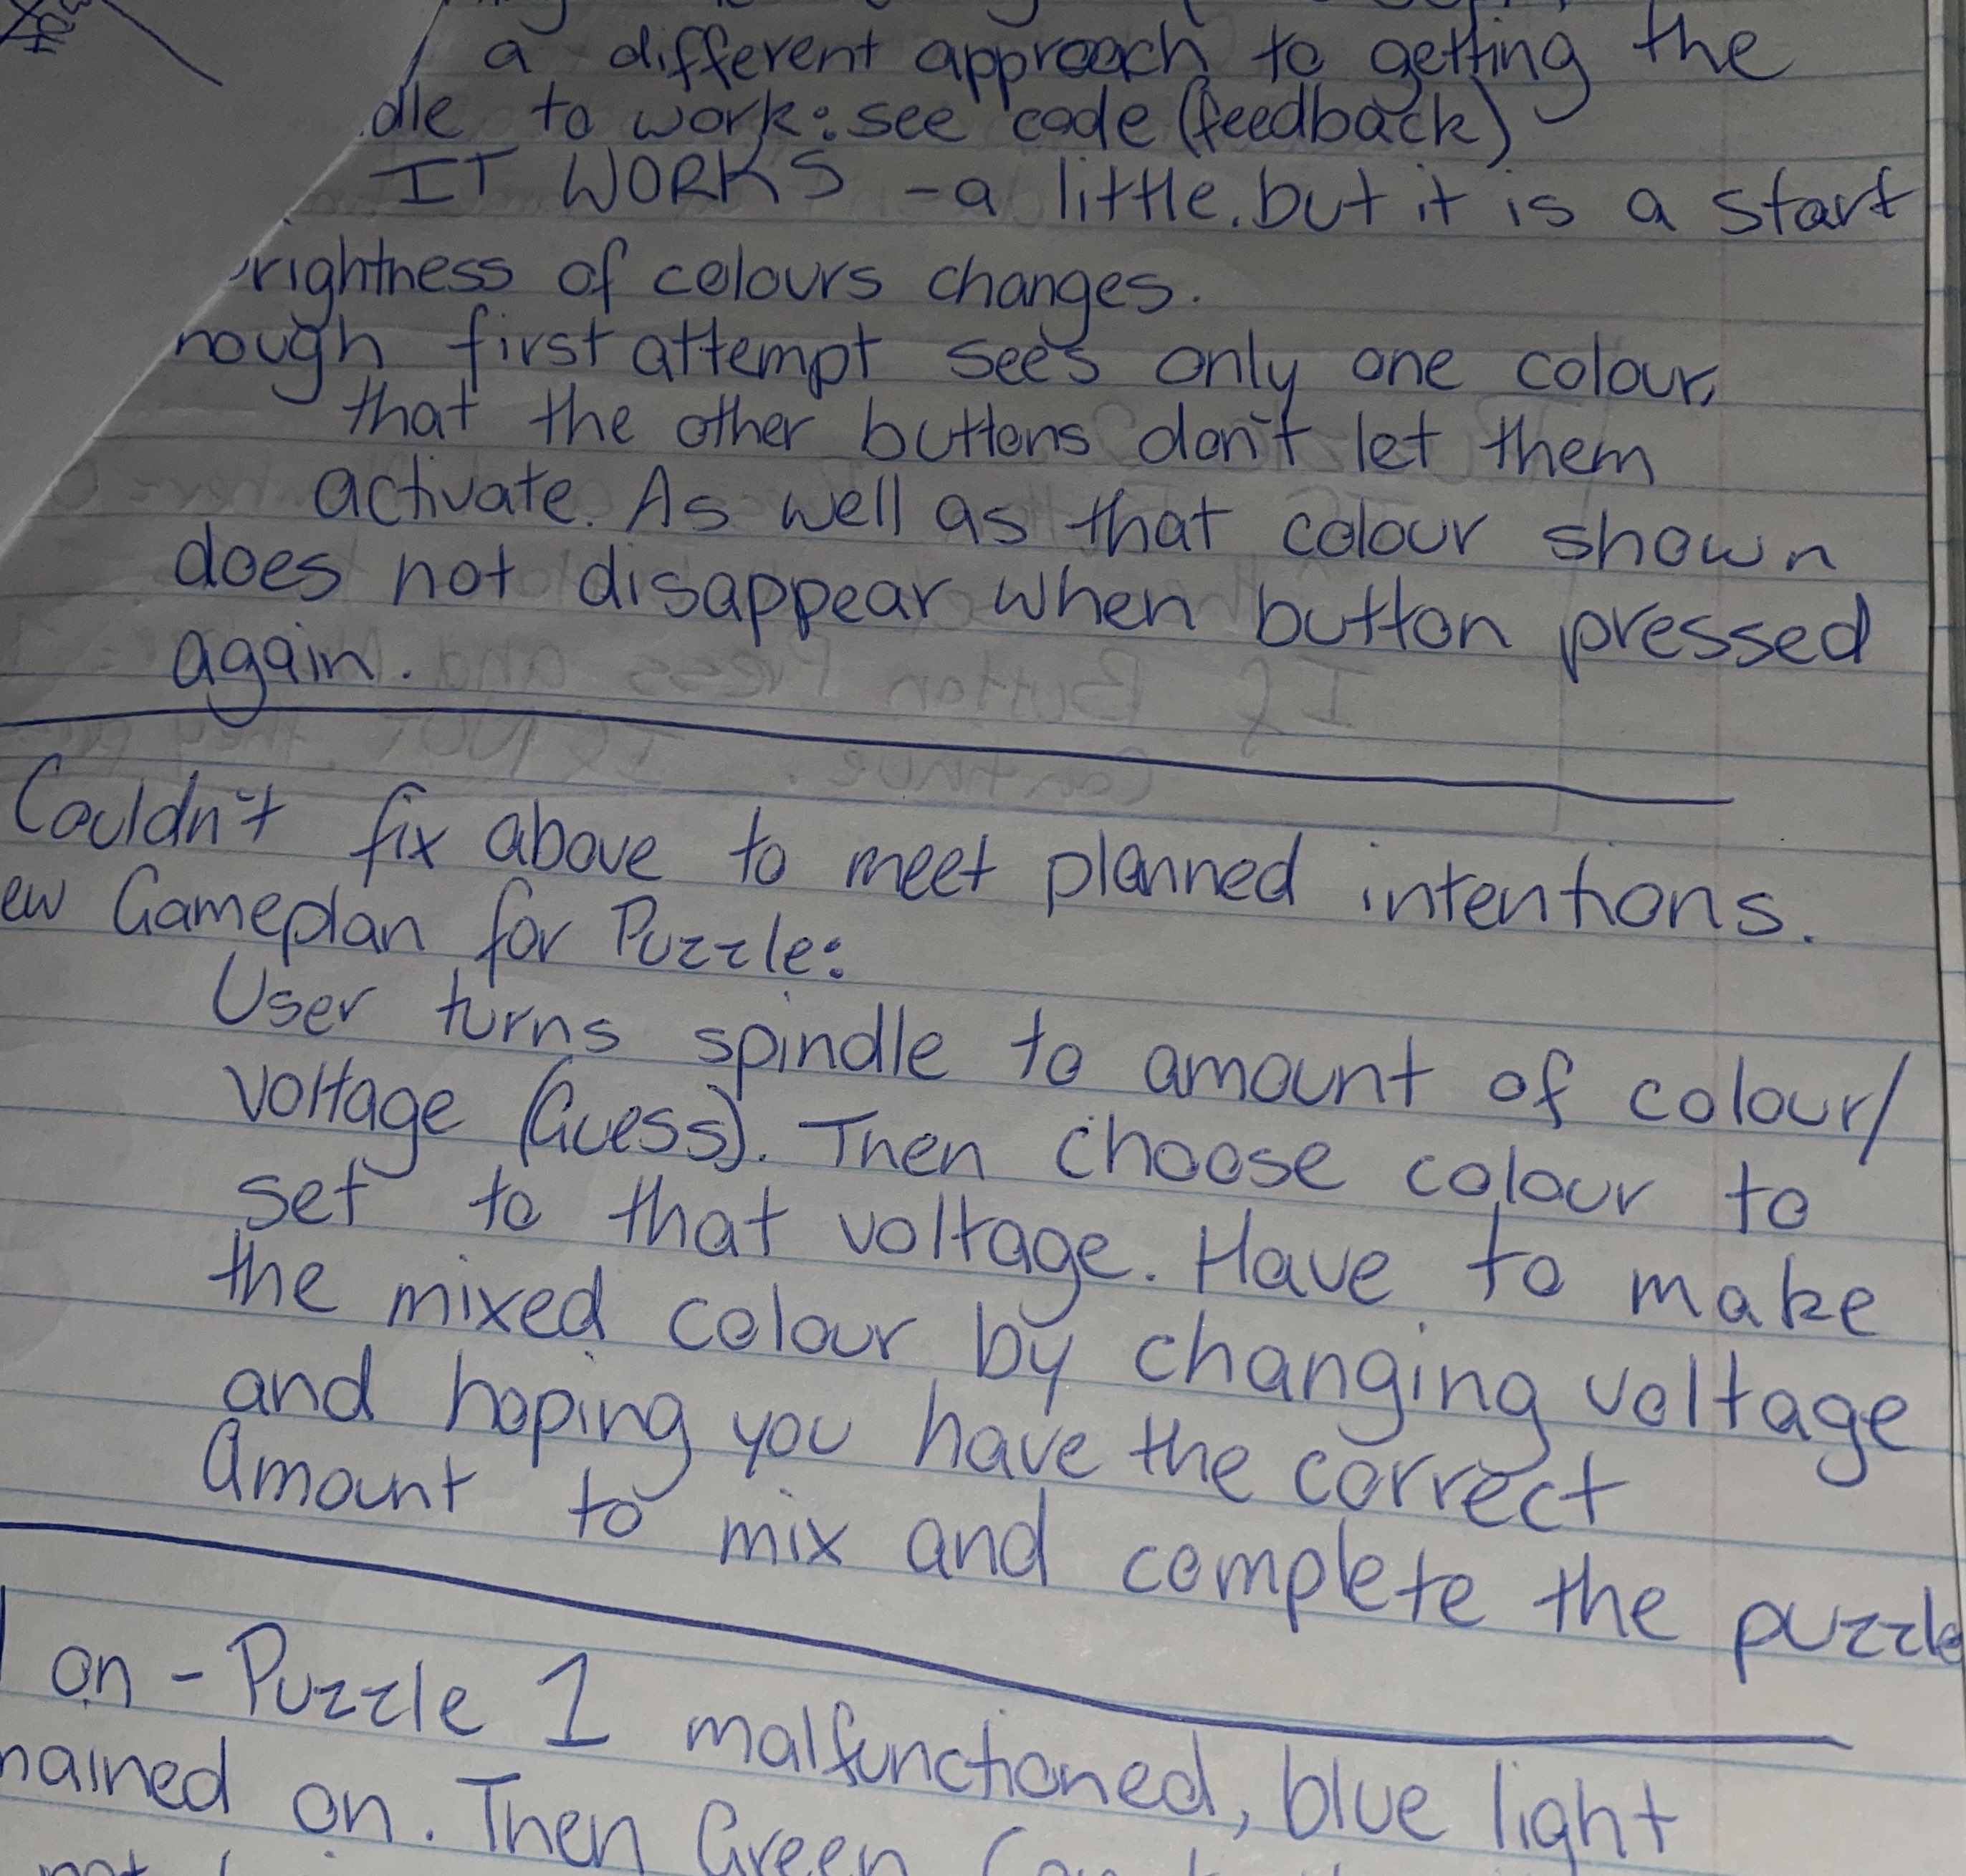 a different approach to getting the
dle to work: see code (feedback)
IT WORKS - a little. but it is a start
rightness of colours changes.
hough first attempt sees only one colour,
that the other buttons don't let them
activate. As well as that colour shown
does not disappear when button pressed
again.
Couldn't fix above to meet planned intentions.
ew Gameplan for Puzzle:
User turns spindle to amount of colour/
voltage (Guess). Then choose colour to
set to that voltage. Have to make
the mixed colour by changing voltage
and hoping you have the correct
Amount to mix and complete the puzzle
on - Puzzle 1 malfunctioned, blue light
mained on. Then Green